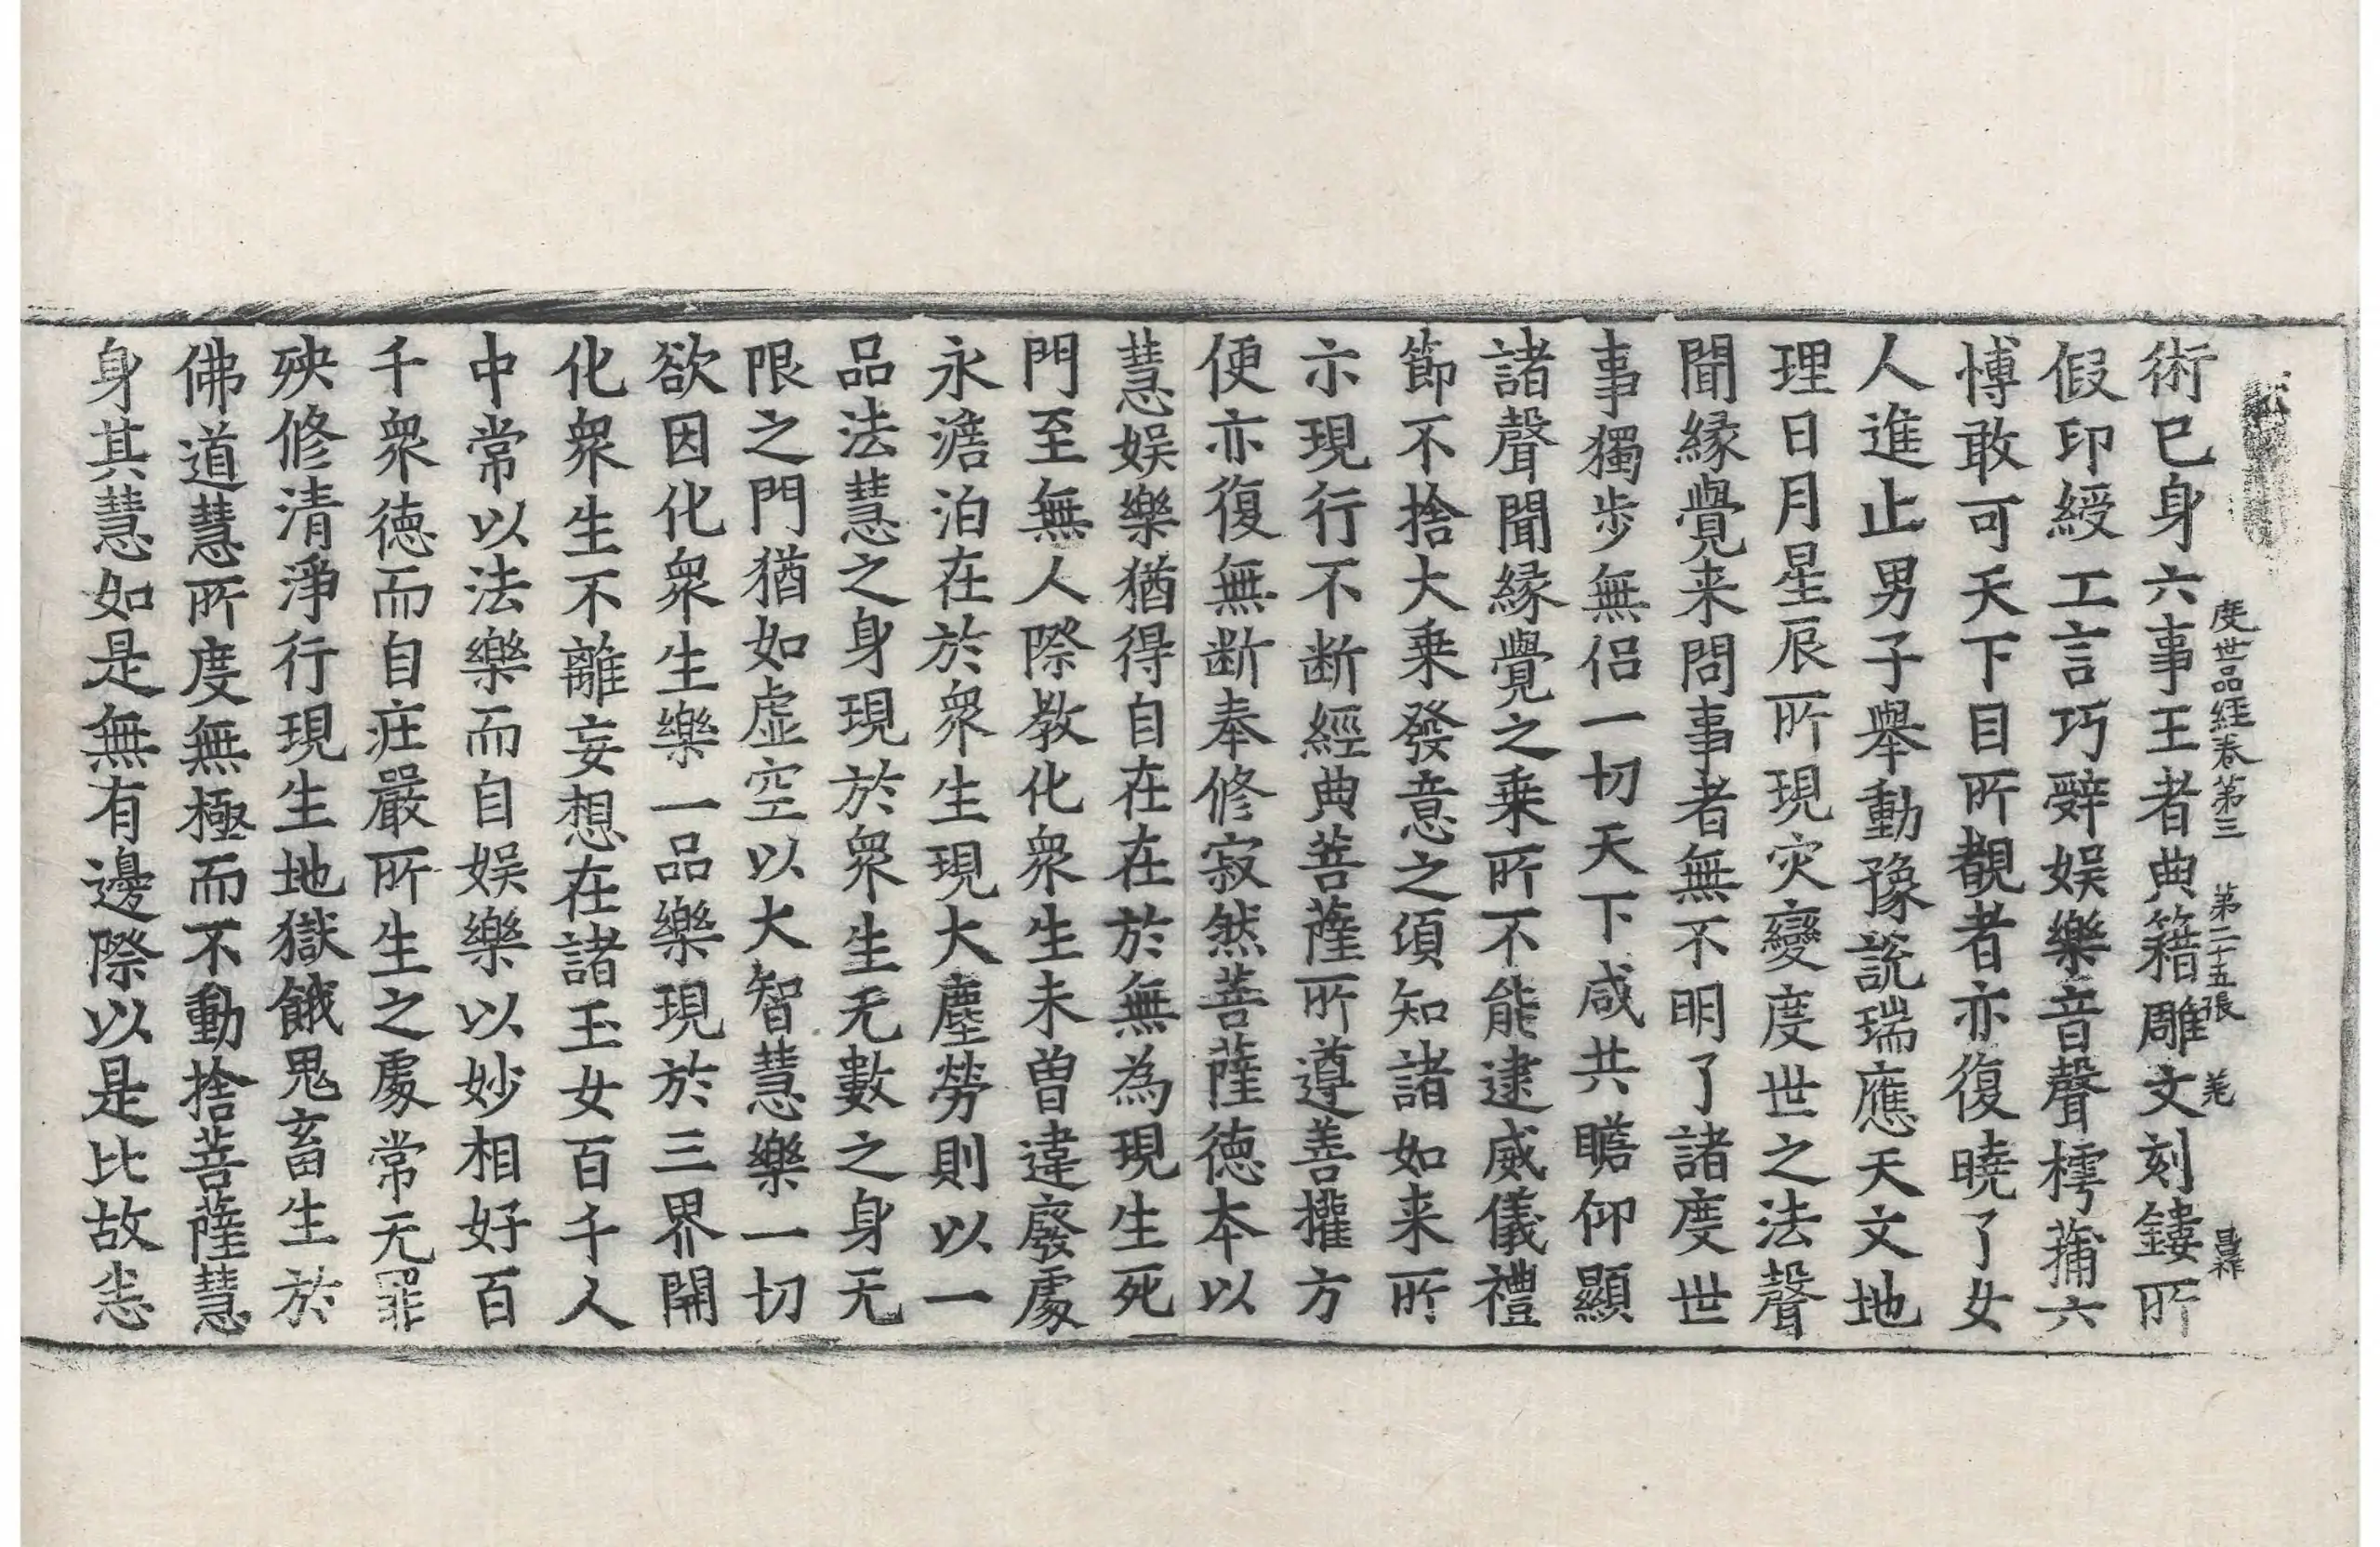 度世品經卷第三 第二十五張 羌
術已身六事王者典籍雕文刻鏤所
假印綬工言巧辭娛樂音聲樗蒱六
博敢可天下目所覩者亦復曉了女
人進止男子舉動豫說瑞應天文地
理日月星辰所現灾變度世之法聲
聞緣覺来問事者無不明了諸度世
事獨步無侶一切天下咸共瞻仰顯
諸聲聞緣覺之乗所不能逮威儀禮
節不捨大乗發意之頃知諸如来所
示現行不断經典菩薩所遵善攉方
便亦復無断奉修寂然菩薩徳本以
慧娛樂猶得自在在於無為現生死
門至無人際教化衆生未曽違廢處
永澹泊在於衆生現大塵勞則以一
品法慧之身現於衆生无數之身无
限之門猶如虚空以大智慧樂一切
欲因化衆生樂一品樂現於三界開
化衆生不離妄想在諸玉女百千人
中常以法樂而自娛樂以妙相好百
千衆徳而自庄嚴所生之處常无罪
殃修清淨行現生地獄餓鬼畜生於
佛道慧所度無極而不動捨菩薩慧
身其慧如是無有邊際以是比故恙